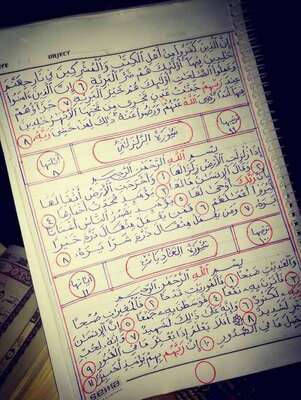 OBJECT
إن الذين كفروا من أهل الكتب والمشركين في نار جهنم
خلدين فيها أولئك هم شر البرية ٦ إن الذين ءامنوا
وعملوا الصلحت أولئك هم خير البرية ٧ جزاؤهم
عند ربهم جنت عدن تجري من تحتها الأنهر خلدين
فيها أبدا رضي الله عنهم ورضوا عنه ذلك لمن خشي ربه ٨
سورة الزلزلة
آياتها ٨
بسم الله الرحمن الرحيم
إذا زلزلت الأرض زلزالها ١ وأخرجت الأرض أثقالها
٢ وقال الإنسن ما لها ٣ يومئذ تحدث أخبارها
٤ بأن ربك أوحى لها ٥ يومئذ يصدر الناس أشتاتا
ليروا أعملهم ٦ فمن يعمل مثقال ذرة خيرا
يره ٧ ومن يعمل مثقال ذرة شرا يره ٨
سورة العاديات
آياتها ١١
بسم الله الرحمن الرحيم
والعديت ضبحا ١ فالموريت قدحا ٢ فالمغيرت صبحا
٣ فأثرن به نقعا ٤ فوسطن به جمعا ٥ إن الإنسن
لربه لكنود ٦ وإنه على ذلك لشهيد ٧ وإنه لحب
الخير لشديد ٨ أفلا يعلم إذا بعثر ما في القبور ٩
وحصل ما في الصدور ١٠ إن ربهم بهم يومئذ لخبير ١١